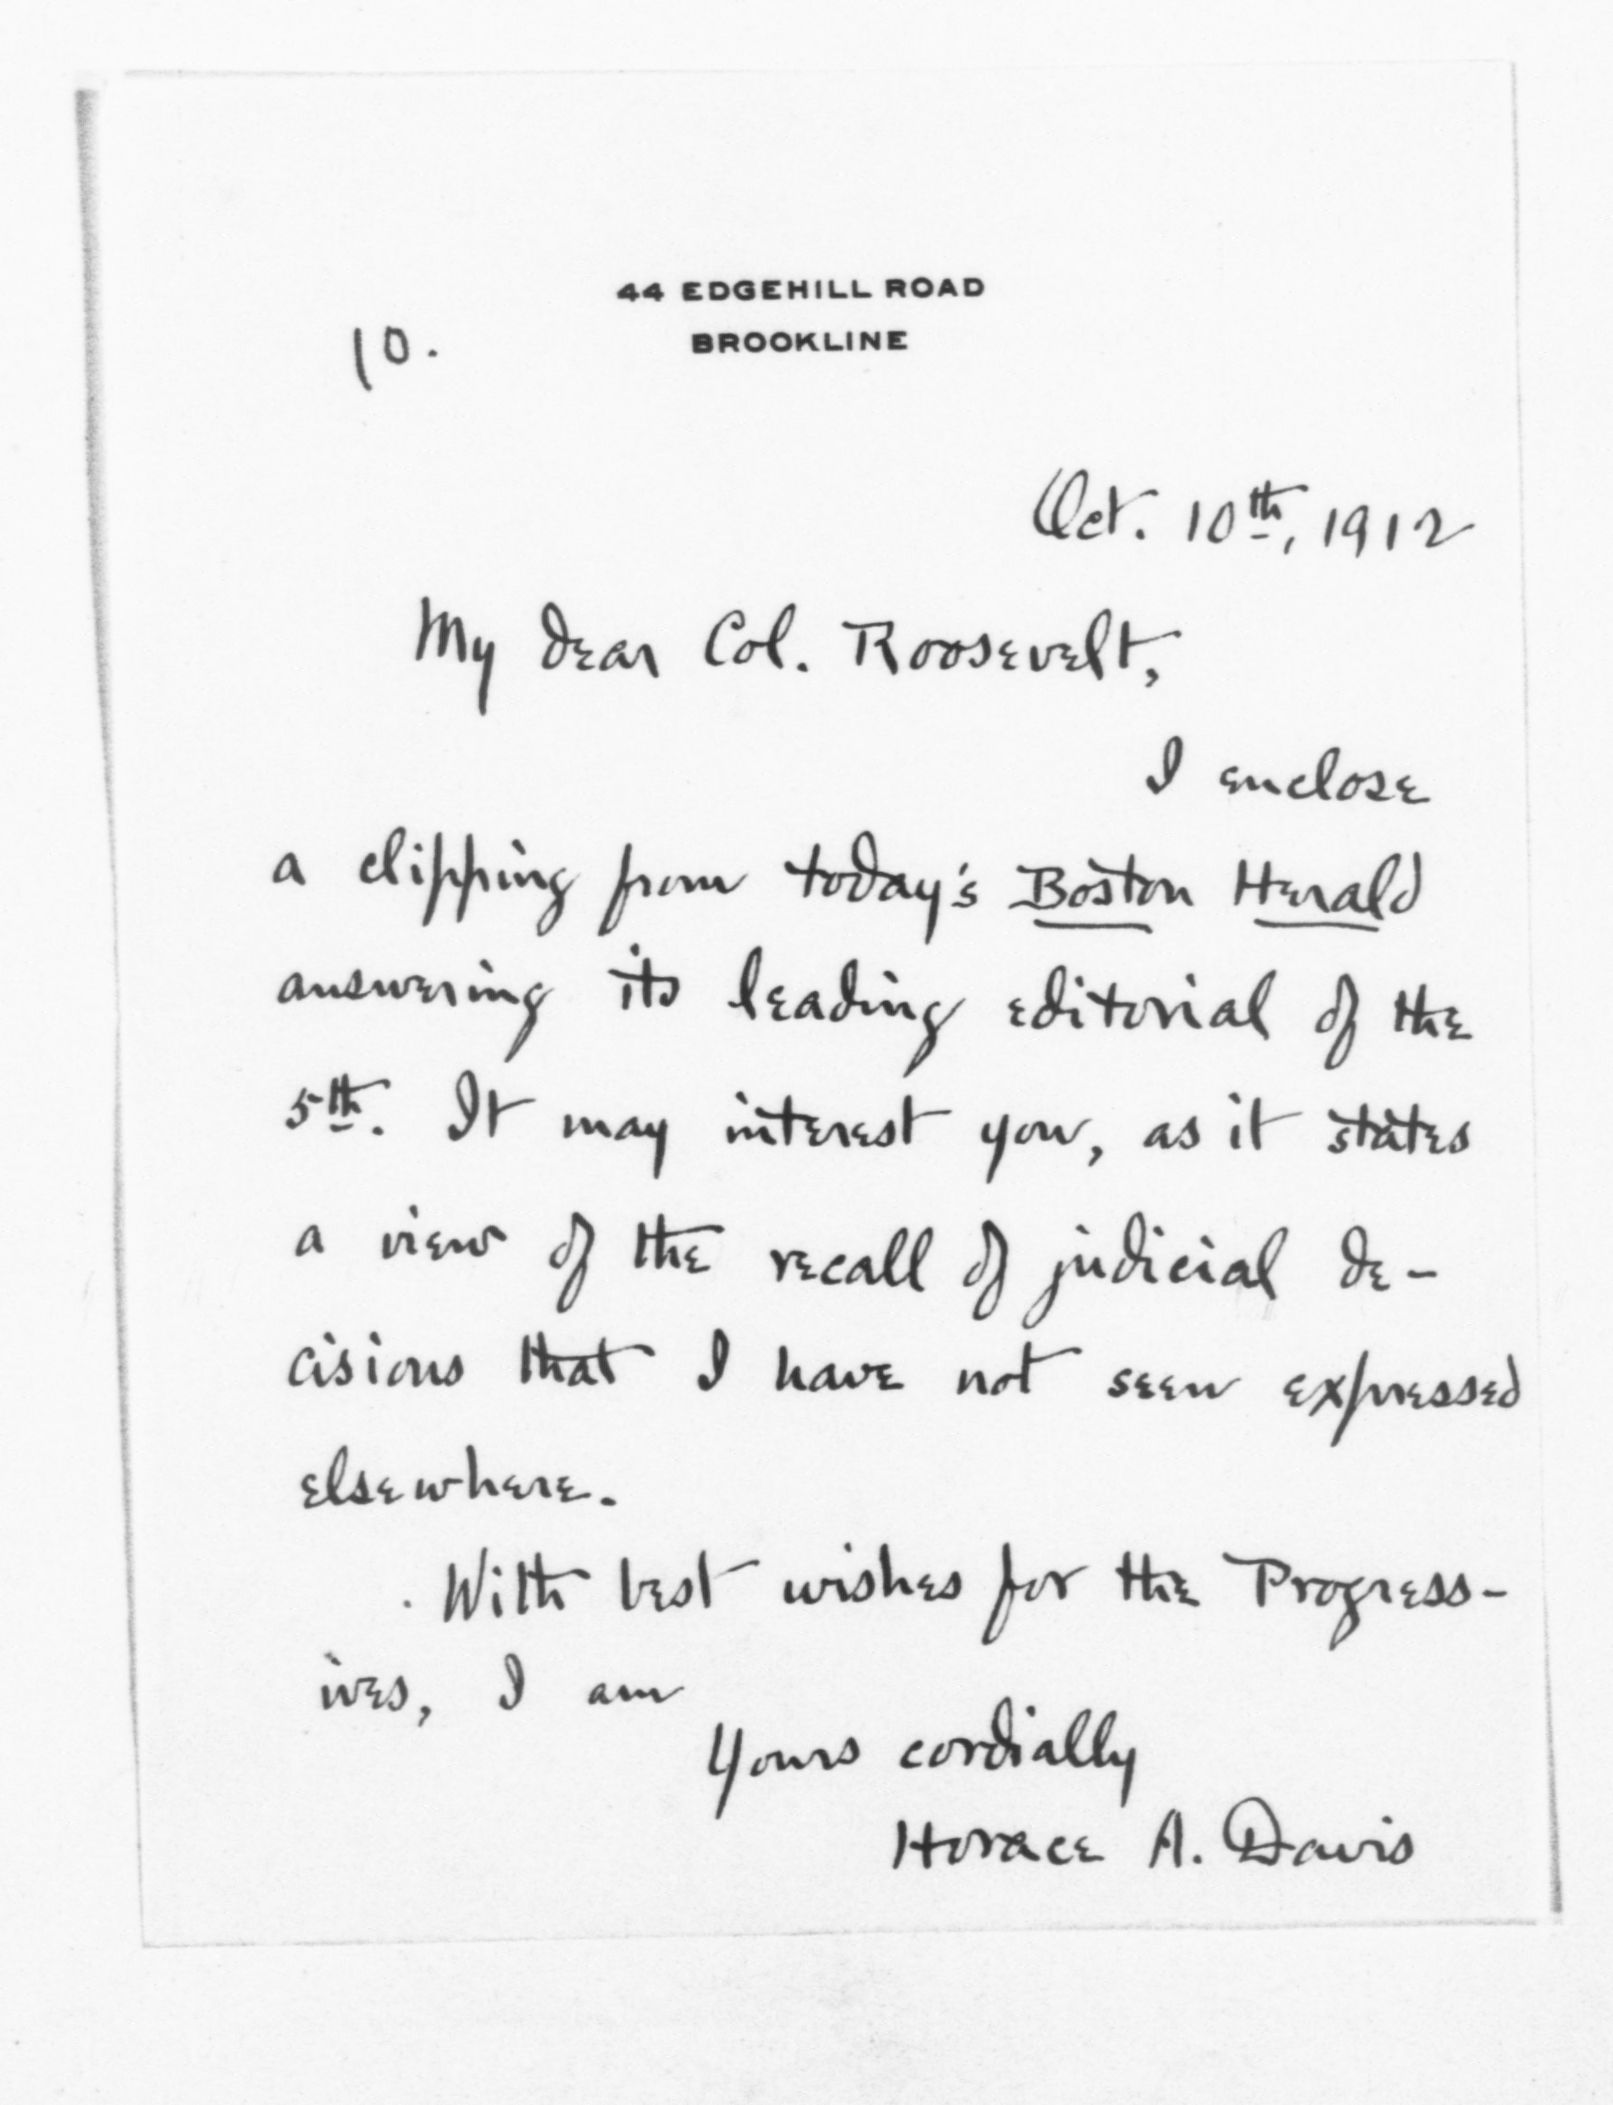 44 EDGEHILL ROAD
BROOKLINE
10.
Oct. 10th, 1912
My dear Col. Roosevelt,
I enclose
a clipping from today's Boston Herald
answering its leading editorial of the
5th. It may interest you, as it states
a view of the recall of judicial de-
cisions that I have not seen expressed
elsewhere.
With best wishes for the Progress-
ives, I am
Yours cordially
Horace A. Davis